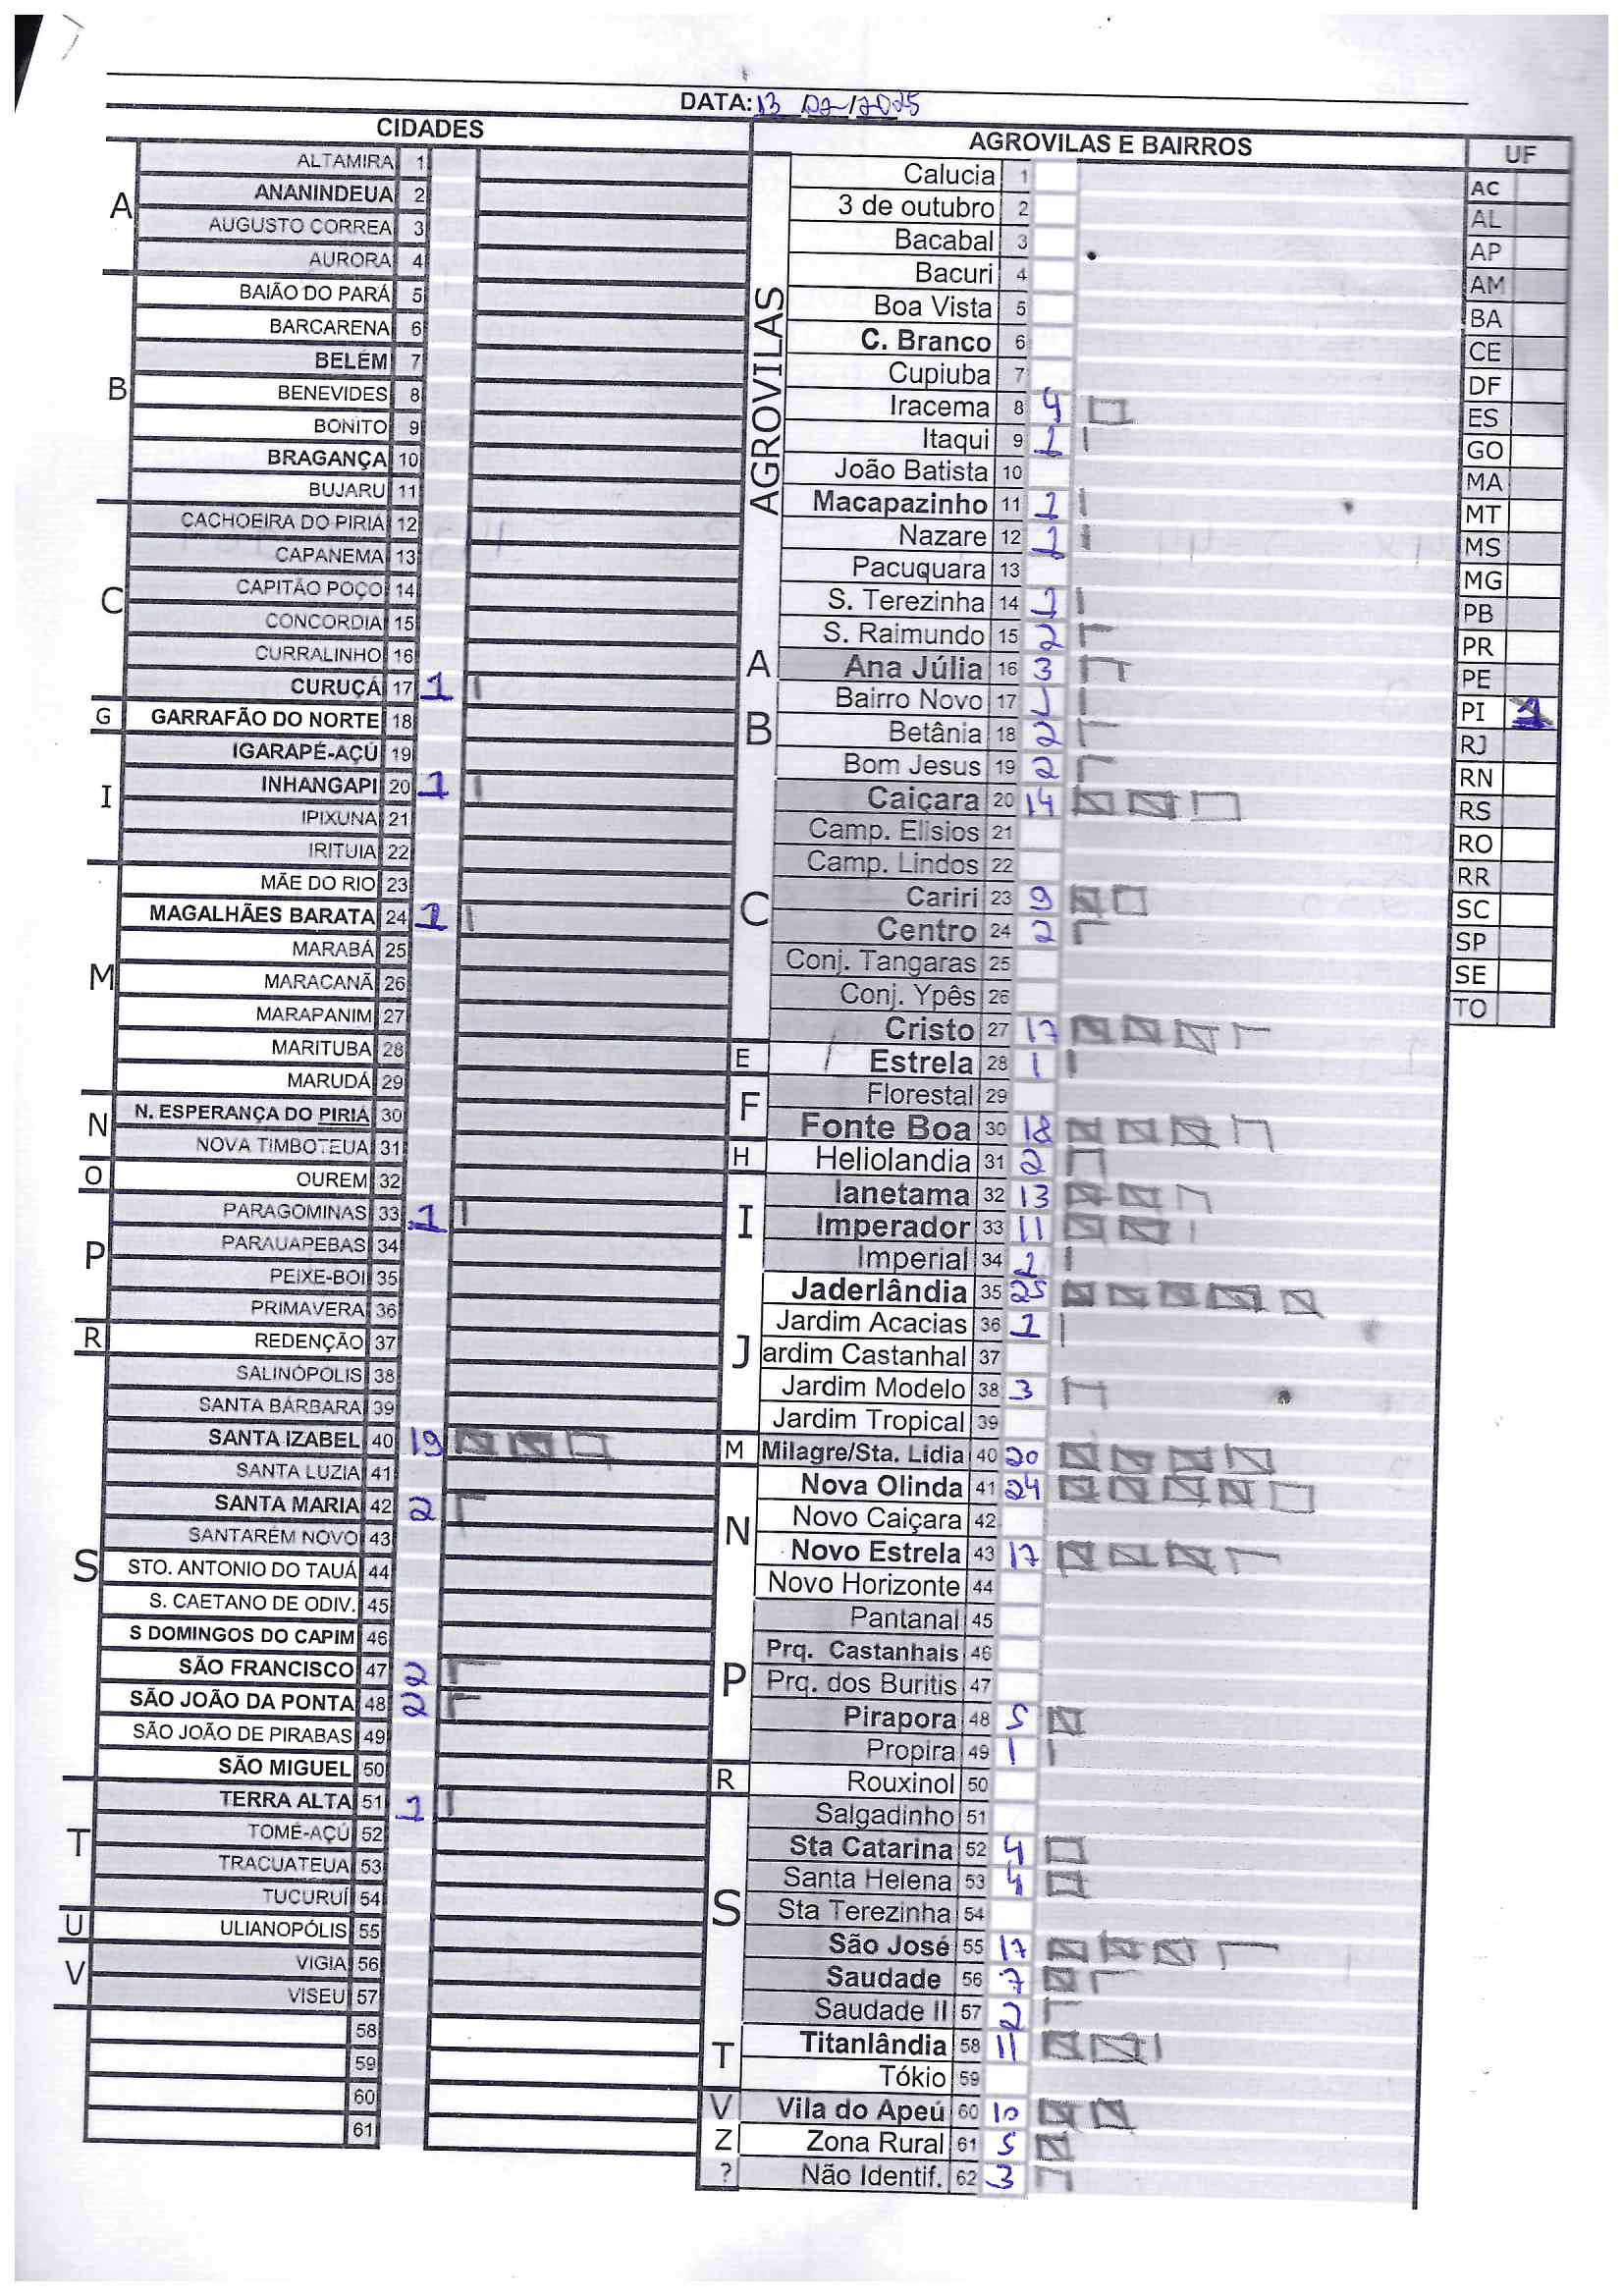 DATA: 13 /02/2025
CIDADES
A
ALTAMIRA 1
ANANINDEUA 2
AUGUSTO CORREA 3
AURORA 4
B
BAIÃO DO PARÁ 5
BARCARENA 6
BELÉM 7
BENEVIDES 8
BONITO 9
BRAGANÇA 10
BUJARU 11
C
CACHOEIRA DO PIRIÁ 12
CAPANEMA 13
CAPITÃO POÇO 14
CONCORDIA 15
CURRALINHO 16
CURUÇÁ 17 1
G
GARRAFÃO DO NORTE 18
I
IGARAPÉ-AÇÚ 19
INHANGAPI 20 1
IPIXUNA 21
IRITUIA 22
M
MÃE DO RIO 23
MAGALHÃES BARATA 24 1
MARABÁ 25
MARACANÃ 26
MARAPANIM 27
MARITUBA 28
MARUDÁ 29
N
N. ESPERANÇA DO PIRIÁ 30
NOVA TIMBOTEUA 31
O
OUREM 32
P
PARAGOMINAS 33 1
PARAUAPEBAS 34
PEIXE-BOI 35
PRIMAVERA 36
R
REDENÇÃO 37
S
SALINÓPOLIS 38
SANTA BÁRBARA 39
SANTA IZABEL 40 19
SANTA LUZIA 41
SANTA MARIA 42 2
SANTARÉM NOVO 43
STO. ANTONIO DO TAUÁ 44
S. CAETANO DE ODIV. 45
S DOMINGOS DO CAPIM 46
SÃO FRANCISCO 47 2
SÃO JOÃO DA PONTA 48 2
SÃO JOÃO DE PIRABAS 49
SÃO MIGUEL 50
T
TERRA ALTA 51 1
TOMÉ-AÇÚ 52
TRACUATEUA 53
TUCURUÍ 54
U
ULIANOPÓLIS 55
V
VIGIA 56
VISEU 57
58
59
60
61
AGROVILAS E BAIRROS
AGROVILAS
Calucia 1
3 de outubro 2
Bacabal 3
Bacuri 4
Boa Vista 5
C. Branco 6
Cupiuba 7
Iracema 8 4
Itaqui 9 1
João Batista 10
Macapazinho 11 1
Nazare 12 1
Pacuquara 13
S. Terezinha 14 1
S. Raimundo 15 2
A
Ana Júlia 16 3
B
Bairro Novo 17 1
Betânia 18 2
Bom Jesus 19 2
C
Caiçara 20 14
Camp. Elísios 21
Camp. Lindos 22
Cariri 23 9
Centro 24 2
Conj. Tangaras 25
Conj. Ypês 26
Cristo 27 17
E
Estrela 28 1
F
Florestal 29
Fonte Boa 30 18
H
Heliolandia 31 2
I
Ianetama 32 13
Imperador 33 11
Imperial 34 1
J
Jaderlândia 35 25
Jardim Acacias 36 1
ardim Castanhal 37
Jardim Modelo 38 3
Jardim Tropical 39
M
Milagre/Sta. Lidia 40 20
N
Nova Olinda 41 24
Novo Caiçara 42
Novo Estrela 43 17
Novo Horizonte 44
P
Pantanal 45
Prq. Castanhais 46
Prq. dos Buritis 47
Pirapora 48 5
Propira 49 1
R
Rouxinol 50
S
Salgadinho 51
Sta Catarina 52 4
Santa Helena 53 4
Sta Terezinha 54
São José 55 17
Saudade 56 7
Saudade II 57 2
T
Titanlândia 58 11
Tókio 59
V
Vila do Apeú 60 10
Z
Zona Rural 61 5
?
Não Identif. 62 3
UF
AC
AL
AP
AM
BA
CE
DF
ES
GO
MA
MT
MS
MG
PB
PR
PE
PI 1
RJ
RN
RS
RO
RR
SC
SP
SE
TO